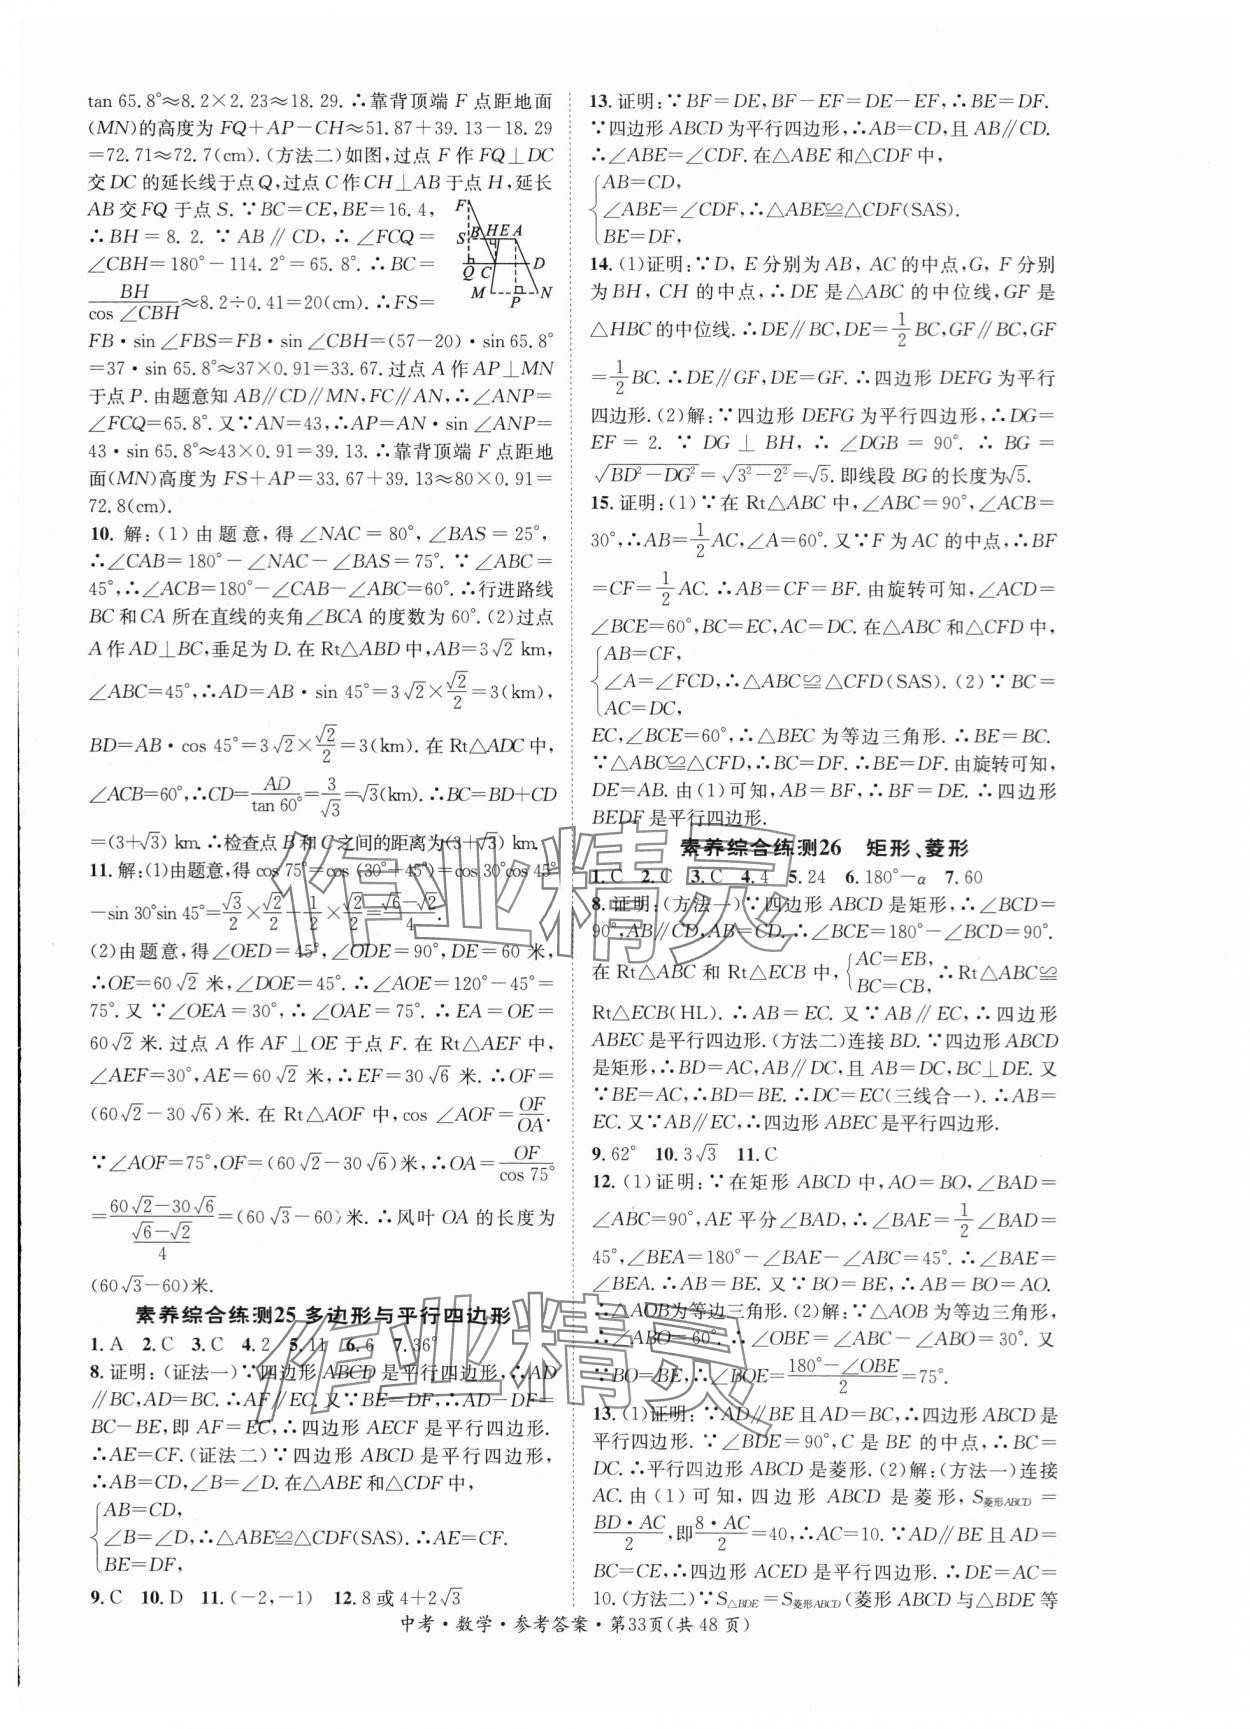 tan 65.8°≈8.2×2.23≈18.29.∴靠背顶端 F 点距地面
(MN)的高度为 FQ+AP-CH≈51.87+39.13-18.29
=72.71≈72.7(cm).(方法二)如图,过点 F 作 FQ⊥DC
交 DC 的延长线于点 Q,过点 C 作 CH⊥AB 于点 H,延长
AB 交 FQ 于点 S.∵BC=CE,BE=16.4,
∴BH=8.2.∵AB∥CD,∴∠FCQ=
∠CBH=180°-114.2°=65.8°.∴BC=
BH/cos∠CBH≈8.2÷0.41=20(cm).∴FS=
F
S B H E A
Q C D
M P N
FB·sin∠FBS=FB·sin∠CBH=(57-20)·sin 65.8°
=37·sin 65.8°≈37×0.91=33.67.过点 A 作 AP⊥MN
于点 P.由题意知 AB∥CD∥MN,FC∥AN,∴∠ANP=
∠FCQ=65.8°.又∵AN=43,∴AP=AN·sin∠ANP=
43·sin 65.8°≈43×0.91=39.13.∴靠背顶端 F 点距地
面(MN)高度为 FS+AP=33.67+39.13≈80×0.91=
72.8(cm).
10.解:(1)由题意,得∠NAC=80°,∠BAS=25°,
∴∠CAB=180°-∠NAC-∠BAS=75°.∵∠ABC=
45°,∴∠ACB=180°-∠CAB-∠ABC=60°.∴行进路线
BC 和 CA 所在直线的夹角∠BCA 的度数为 60°.(2)过点
A 作 AD⊥BC,垂足为 D.在 Rt△ABD 中,AB=3√2 km,
∠ABC=45°,∴AD=AB·sin 45°=3√2×√2/2=3(km),
BD=AB·cos 45°=3√2×√2/2=3(km).在 Rt△ADC 中,
∠ACB=60°,∴CD=AD/tan 60°=3/√3=√3(km).∴BC=BD+CD
=(3+√3) km.∴检查点 B 和 C 之间的距离为(3+√3) km.
11.解:(1)由题意,得 cos 75°=cos (30°+45°)=cos 30°cos 45°
-sin 30°sin 45°=√3/2×√2/2-1/2×√2/2=(√6-√2)/4.
(2)由题意,得∠OED=45°,∠ODE=90°,DE=60 米,
∴OE=60√2 米,∠DOE=45°.∴∠AOE=120°-45°=
75°.又∵∠OEA=30°,∴∠OAE=75°.∴EA=OE=
60√2 米.过点 A 作 AF⊥OE 于点 F.在 Rt△AEF 中,
∠AEF=30°,AE=60√2 米,∴EF=30√6 米.∴OF=
(60√2-30√6)米.在 Rt△AOF 中,cos∠AOF=OF/OA.
∵∠AOF=75°,OF=(60√2-30√6)米,∴OA=OF/cos 75°
=(60√2-30√6)/((√6-√2)/4)=(60√3-60)米.∴风叶 OA 的长度为
(60√3-60)米.
素养综合练测25 多边形与平行四边形
1.A 2.C 3.C 4.2 5.11 6.6 7.36°
8.证明:(证法一)∵四边形 ABCD 是平行四边形,∴AD
∥BC,AD=BC.∴AF∥EC.又∵BE=DF,∴AD-DF=
BC-BE,即 AF=EC,∴四边形 AECF 是平行四边形.
∴AE=CF.(证法二)∵四边形 ABCD 是平行四边形,
∴AB=CD,∠B=∠D.在△ABE 和△CDF 中,
AB=CD,
∠B=∠D,∴△ABE≌△CDF(SAS).∴AE=CF.
BE=DF,
9.C 10.D 11.(-2,-1) 12.8 或 4+2√3
13.证明:∵BF=DE,BF-EF=DE-EF,∴BE=DF.
∵四边形 ABCD 为平行四边形,∴AB=CD,且 AB∥CD.
∴∠ABE=∠CDF.在△ABE 和△CDF 中,
AB=CD,
∠ABE=∠CDF,∴△ABE≌△CDF(SAS).
BE=DF,
14.(1)证明:∵D,E 分别为 AB,AC 的中点,G,F 分别
为 BH,CH 的中点,∴DE 是△ABC 的中位线,GF 是
△HBC 的中位线.∴DE∥BC,DE=1/2BC,GF∥BC,GF
=1/2BC.∴DE∥GF,DE=GF.∴四边形 DEFG 为平行
四边形.(2)解:∵四边形 DEFG 为平行四边形,∴DG=
EF=2.∵DG⊥BH,∴∠DGB=90°.∴BG=
√(BD²-DG²)=√(3²-2²)=√5.即线段 BG 的长度为√5.
15.证明:(1)∵在 Rt△ABC 中,∠ABC=90°,∠ACB=
30°,∴AB=1/2AC,∠A=60°.又∵F 为 AC 的中点,∴BF
=CF=1/2AC.∴AB=CF=BF.由旋转可知,∠ACD=
∠BCE=60°,BC=EC,AC=DC.在△ABC 和△CFD 中,
AB=CF,
∠A=∠FCD,∴△ABC≌△CFD(SAS).(2)∵BC=
AC=DC,
EC,∠BCE=60°,∴△BEC 为等边三角形.∴BE=BC.
∵△ABC≌△CFD,∴BC=DF.∴BE=DF.由旋转可知,
DE=AB.由(1)可知,AB=BF,∴BF=DE.∴四边形
BEDF 是平行四边形.
素养综合练测26 矩形、菱形
1.C 2.C 3.C 4.4 5.24 6.180°-α 7.60
8.证明:(方法一)∵四边形 ABCD 是矩形,∴∠BCD=
90°,AB∥CD,AB=CD.∴∠BCE=180°-∠BCD=90°.
在 Rt△ABC 和 Rt△ECB 中,{AC=EB,BC=CB,∴Rt△ABC≌
Rt△ECB(HL).∴AB=EC.又∵AB∥EC,∴四边形
ABEC 是平行四边形.(方法二)连接 BD.∵四边形 ABCD
是矩形,∴BD=AC,AB∥DC,且 AB=DC,BC⊥DE.又
∵BE=AC,∴BD=BE.∴DC=EC(三线合一).∴AB=
EC.又∵AB∥EC,∴四边形 ABEC 是平行四边形.
9.62° 10.3√3 11.C
12.(1)证明:∵在矩形 ABCD 中,AO=BO,∠BAD=
∠ABC=90°,AE 平分∠BAD,∴∠BAE=1/2∠BAD=
45°,∠BEA=180°-∠BAE-∠ABC=45°.∴∠BAE=
∠BEA.∴AB=BE.又∵BO=BE,∴AB=BO=AO.
∴△AOB 为等边三角形.(2)解:∵△AOB 为等边三角形,
∴∠ABO=60°.∴∠OBE=∠ABC-∠ABO=30°.又
∵BO=BE,∴∠BOE=(180°-∠OBE)/2=75°.
13.(1)证明:∵AD∥BE 且 AD=BC,∴四边形 ABCD 是
平行四边形.∵∠BDE=90°,C 是 BE 的中点,∴BC=
DC.∴平行四边形 ABCD 是菱形.(2)解:(方法一)连接
AC.由(1)可知,四边形 ABCD 是菱形,S菱形ABCD=
BD·AC/2,即8·AC/2=40,∴AC=10.∵AD∥BE 且 AD=
BC=CE,∴四边形 ACED 是平行四边形.∴DE=AC=
10.(方法二)∵S△BDE=S菱形ABCD(菱形 ABCD 与△BDE 等
中考·数学·参考答案·第33页(共 48 页)
作业精灵
作业精灵